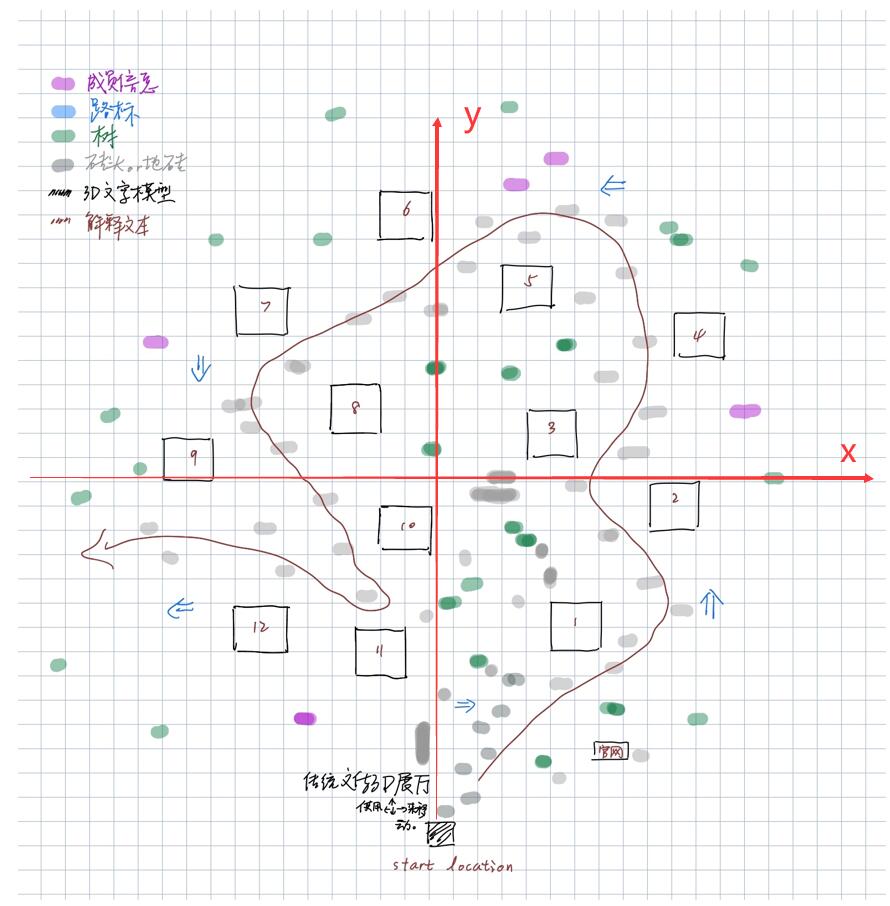 成员信息
路标
树
石堆 or 地砖
3D文字模型
解释文本
y
x
6
5
7
4
8
3
9
2
10
1
12
11
官网
传统文化3D展厅
使用←↕→来移动。
start location